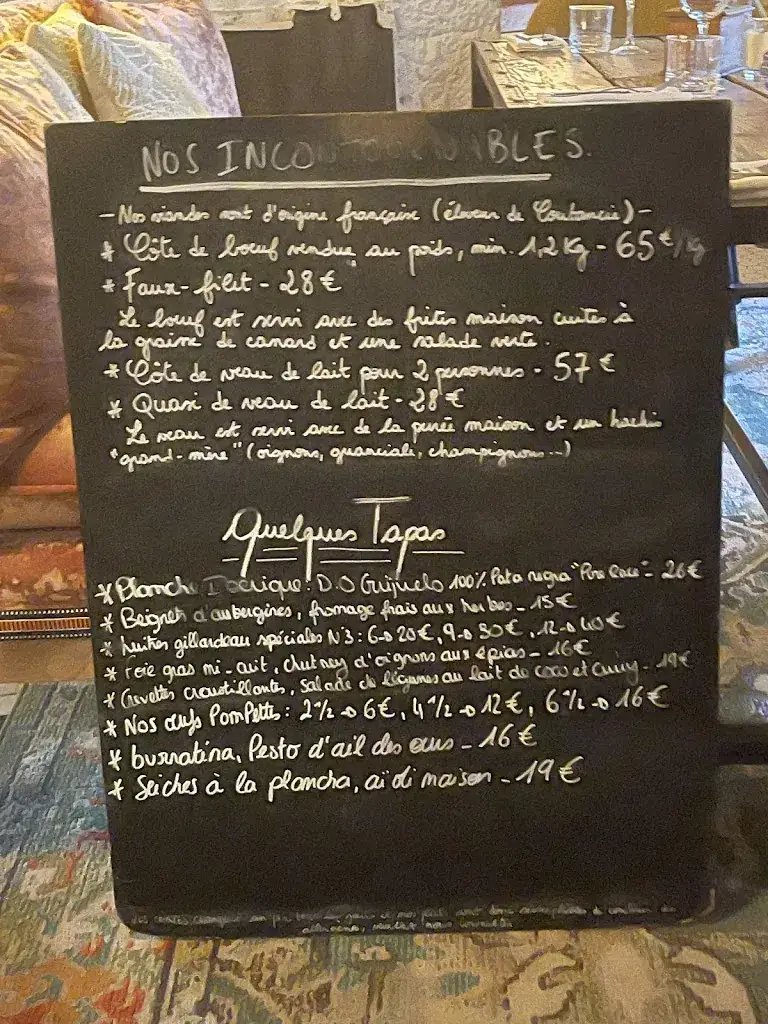 NOS INCONTOURNABLES.
- Nos viandes sont d'origine française (éleveur de Coutancie) -
* Côte de boeuf vendue au poids, min. 1,2 kg - 65€/kg
* Faux-filet - 28€
Le boeuf est servi avec des frites maison cuites à
la graisse de canard et une salade verte.
* Côte de veau de lait pour 2 personnes - 57€
* Quasi de veau de lait - 28€
Le veau est servi avec de la purée maison et un hachis
"grand-mère" (oignons, guanciale, champignons...)
Quelques Tapas
* Planche Iberique: D.O Guijuelo 100% Pata negra "Pure Race" - 26€
* Beignets d'aubergines, fromage frais aux herbes - 15€
* huitres gillardeau spéciales N°3: 6→20€, 9→30€, 12→40€
* Foie gras mi-cuit, chutney d'oignons aux épices - 16€
* Crevettes croustillantes, salade de légumes au lait de coco et curry - 19€
* Nos œufs PomPettes: 2 ½ → 6€, 4 ½ → 12€, 6 ½ → 16€
* burratina, Pesto d'ail des ours - 16€
* Seiches à la plancha, aïoli maison - 19€